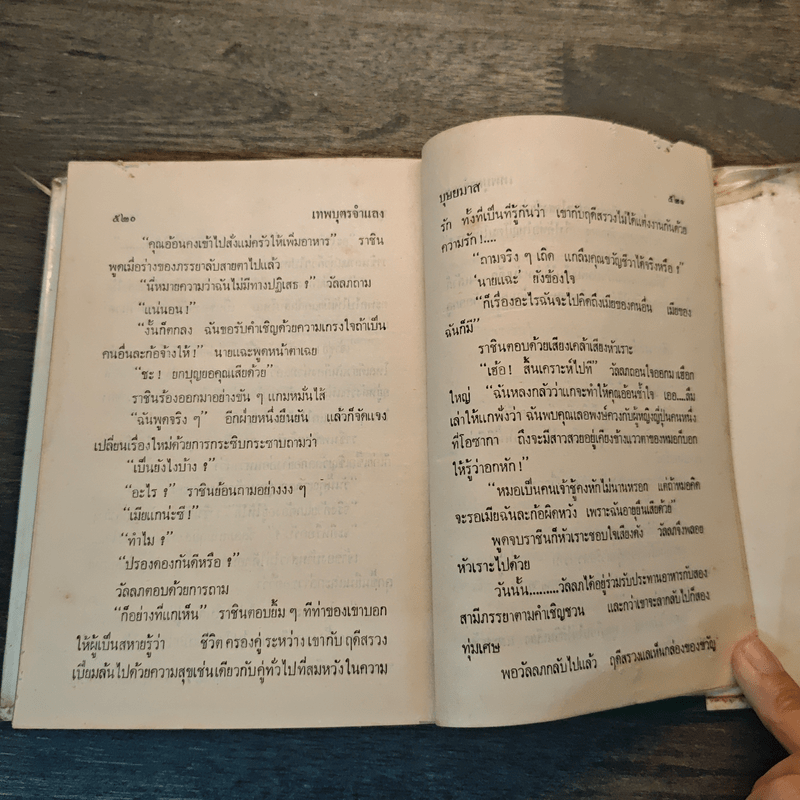 ๕๒๐ เทพบุตรจำแลง
“คุณอ้อนคงเข้าไปสั่งแม่ครัวให้เพิ่มอาหาร” ราชิน
พูดเมื่อร่างของภรรยาลับสายตาไปแล้ว
“นี่หมายความว่าฉันไม่มีทางปฏิเสธ ?” วัลลภถาม
“แน่นอน !”
“งั้นก็ตกลง ฉันขอรับคำเชิญด้วยความเกรงใจถ้าเป็น
คนอื่นละก้อจ้างให้ !” นายแฉะพูดหน้าตาเฉย
“ชะ ! ยกบุญยอคุณเสียด้วย”
ราชินร้องออกมาอย่างขัน ๆ แกมหมั่นไส้
“ฉันพูดจริง ๆ” อีกฝ่ายหนึ่งยืนยัน แล้วก็จัดแจง
เปลี่ยนเรื่องใหม่ด้วยการกระซิบกระซาบถามว่า
“เป็นยังไงบ้าง ?
“อะไร ?” ราชินย้อนถามอย่างงง ๆ
“เมียแกน่ะซี !”
“ทำไม ?”
“ปรองดองกันดีหรือ ?”
วัลลภตอบด้วยการถาม
“ก็อย่างที่แกเห็น” ราชินตอบยิ้ม ๆ ทีท่าของเขาบอก
ให้ผู้เป็นสหายรู้ว่า ชีวิต ครองคู่ ระหว่าง เขากับ ฤดีสรวง
เปี่ยมล้นไปด้วยความสุขเช่นเดียวกับคู่ทั่วไปที่สมหวังในความ
บุษยมาส ๕๒๑
รัก ทั้งที่เป็นที่รู้กันว่า เขากับฤดีสรวงไม่ได้แต่งงานกันด้วย
ความรัก !....
“ถามจริง ๆ เถิด แกลืมคุณขวัญชีวาได้จริงหรือ !”
‘นายแฉะ’ ยังข้องใจ
“ก็เรื่องอะไรฉันจะไปคิดถึงเมียของคนอื่น เมียของ
ฉันก็มี”
ราชินตอบด้วยเสียงเคล้าเสียงหัวเราะ
“เฮ้อ ! สิ้นเคราะห์ไปที” วัลลภถอนใจออกมาเฮือก
ใหญ่ “ฉันหลงกลัวว่าแกจะทำให้คุณอ้อนช้ำใจ เออ....ลืม
เล่าให้แกฟังว่า ฉันพบคุณเลอพงษ์ควงกับผู้หญิงญี่ปุ่นคนหนึ่ง
ที่โอซากา ถึงจะมีสาวสวยอยู่เคียงข้างแววตาของหมอก็บอก
ให้รู้ว่าอกหัก !”
“หมอเป็นคนเจ้าชู้คงหักไม่นานหรอก แต่ถ้าหมอคิด
จะรอเมียฉันละก้อผิดหวัง เพราะฉันอายุยืนเสียด้วย”
พูดจบราชินก็หัวเราะชอบใจเสียงดัง วัลลภจึงพลอย
หัวเราะไปด้วย
วันนั้น.........วัลลภได้อยู่ร่วมรับประทานอาหารกับสอง
สามีภรรยาตามคำเชิญชวน และกว่าเขาจะลากลับไปก็สอง
ทุ่มเศษ
พอวัลลภกลับไปแล้ว ฤดีสรวงแลเห็นกล่องของขวัญ